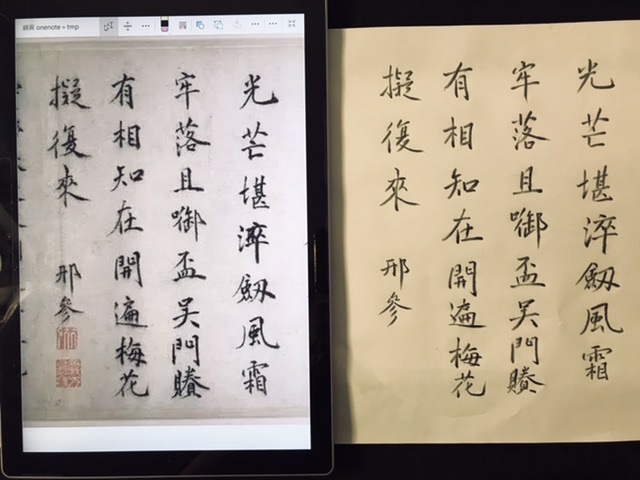 網頁 onenote » tmp
光芒堪淬劔風霜
牢落且啣盃吳門賸
有相知在開遍梅花
擬復來 邢參
光芒堪淬劔風霜
牢落且啣盃吳門賸
有相知在開遍梅花
擬復來 邢參